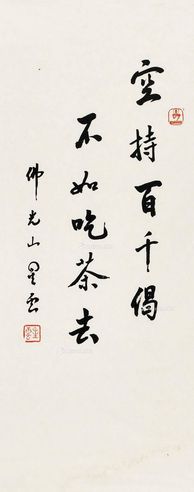 空持百千偈
不如吃茶去
佛光山星雲